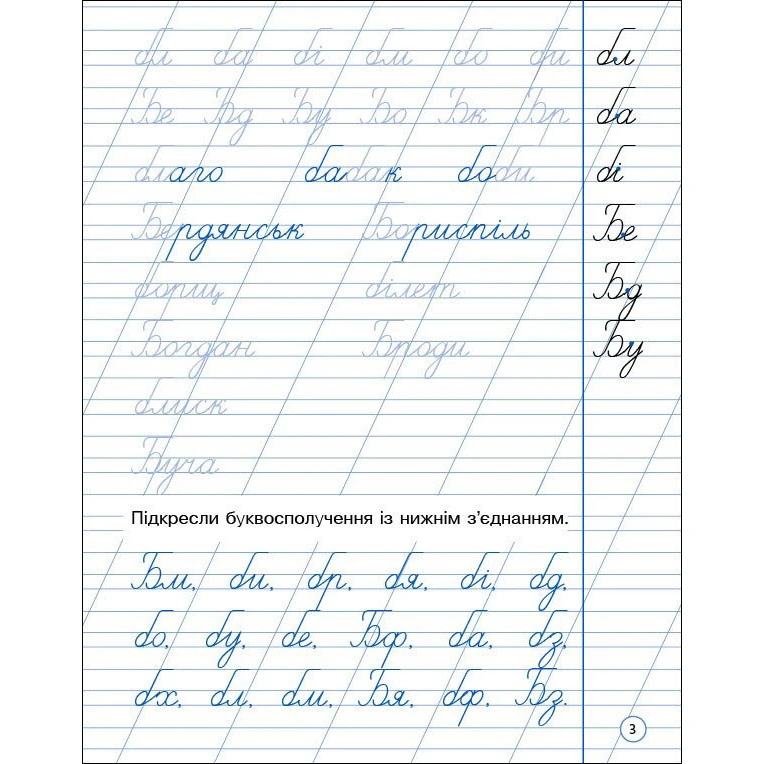 бл ба бі бм бо би бл
Бе Бд Бу Бо Бк Бр ба
благо бабак боби бі
Бердянськ Бориспіль Бе
борщ білет Бд
Богдан Броди Бу
блиск
Буча
Підкресли буквосполучення із нижнім з’єднанням.
Бм, би, бр, бя, бі, бд,
бо, бу, бе, Бф, ба, бз,
бх, бл, бм, Бя, бф, Бз.
3